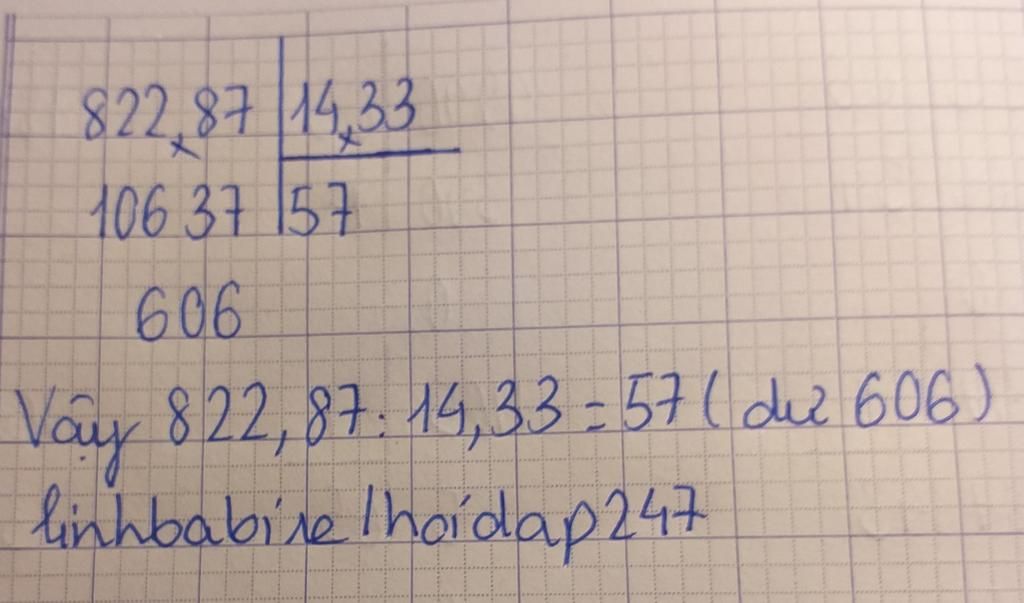 822,87 14,33
10637 57
606
Vậy 822,87 : 14,33 = 57 ( dư 606 )
linhbabire/hoidap247